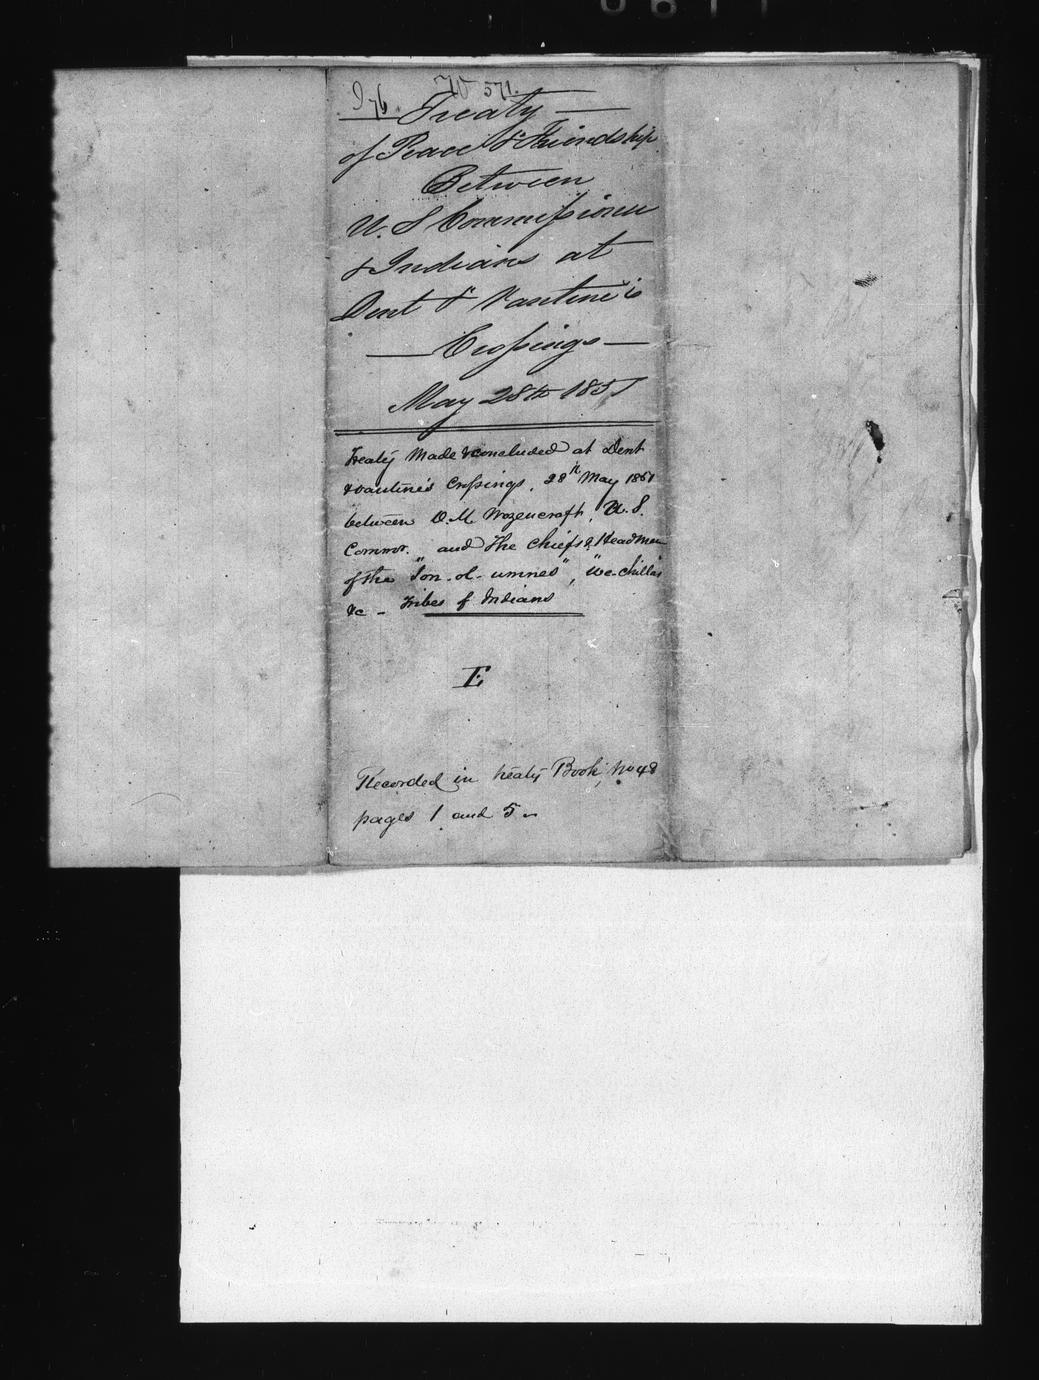 571.
Treaty
of Peace & Friendship
Between
U. S Commissioner
& Indians at
Dent & Vantine's
Crossings
May 28th 1851
Treaty Made & concluded at Dent
& Vantine's Crossings, 28th May 1851
between O. M. Wozencraft, U. S.
Commr. and The Chiefs & Head Men
of the "Iou-ol-umnes", "We-chilla's
&c - Tribes of Indians
E
Recorded in treaty Book, No 48
pages 1 and 5